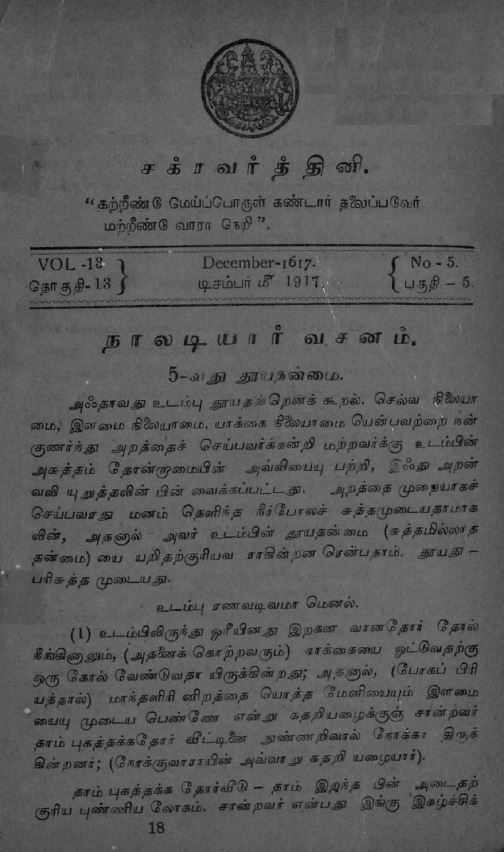 சக்ரவர்த்தினி.
“கற்றீண்டு மேய்ப்பொருள் கண்டார் தலைப்படுவேர்
மற்றீண்டு வாரா நெறி”.
VOL -13
தொகுதி-13
December-1617.
டிசம்பர் மீ 1917.
No - 5.
பகுதி - 5.
நாலடியார் வசனம்.
5-வது தூயதன்மை.
அஃதாவது உடம்பு தூயதன்றெனக் கூறல். செல்வ நிலையா
மை, இளமை நிலையாமை, யாக்கை நிலையாமை யென்பவற்றை நன்
குணர்ந்து அறத்தைச் செய்பவர்க்கன்றி மற்றவர்க்கு உடம்பின்
அசுத்தம் தோன்றாமையின் அவ்வியைபு பற்றி, இஃது அறன்
வலி யுறுத்தலின் பின் வைக்கப்பட்டது. அறத்தை முறையாகச்
செய்பவரது மனம் தெளிந்த நீர்போலச் சுத்தமுடையதாமாக
லின், அதனால் அவர் உடம்பின் தூயதன்மை (சுத்தமில்லாத
தன்மை) யை யறிதற்குரியவ ராகின்றன ரென்பதாம். தூயது -
பரிசுத்த முடையது.
உடம்பு ரணவடிவமா மெனல்.
(1) உடம்பிலிருந்து ஓரீயினது இறகள வானதோர் தோல்
நீங்கினாலும், (அதனைக் கொற்றவரும்) காக்கையை ஓட்டுவதற்கு
ஒரு கோல் வேண்டுவதா யிருக்கின்றது; அதனால், (போகப் பிரி
யத்தால்) மாந்தளிரி னிறத்தை யொத்த மேனியையும் இளமை
யையு முடைய பெண்ணே என்று கதறியழைக்குஞ் சான்றவர்
தாம் புகத்தக்கதோர் வீட்டினை நுண்ணறிவால் நோக்கா திருக்
கின்றனர்; (நோக்குவாராயின் அவ்வாறு கதறி யழையார்).
தாம் புகத்தக்க தோர்வீடு - தாம் இறந்த பின் அடைதற்
குரிய புண்ணிய லோகம். சான்றவர் என்பது இங்கு இகழ்ச்சிக்
18